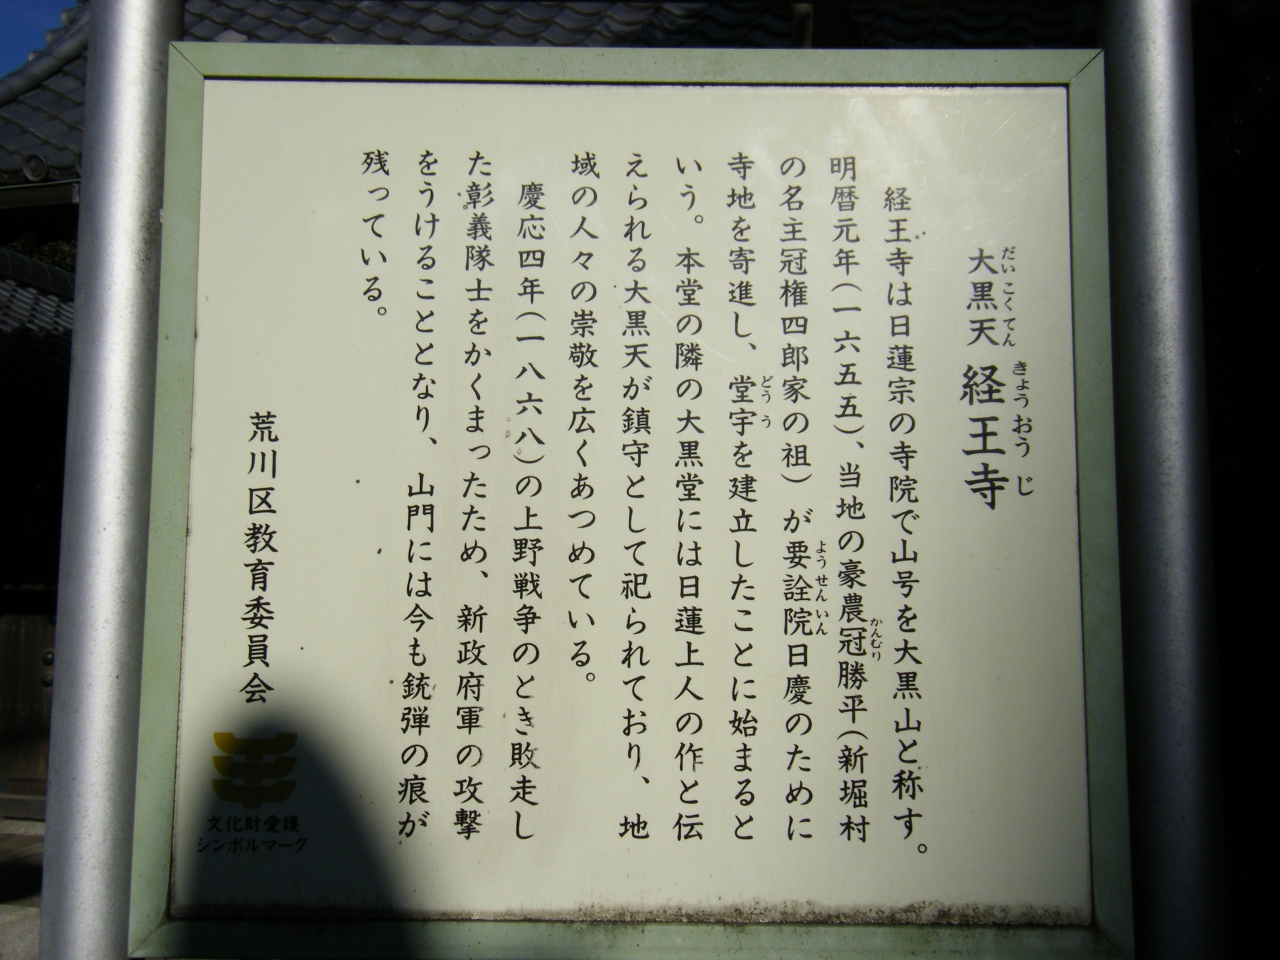 大黒天 経王寺
だいこくてん きょうおうじ
経王寺は日蓮宗の寺院で山号を大黒山と称す。
明暦元年(一六五五)、当地の豪農冠勝平(新堀村
かんむり
の名主冠権四郎家の祖)が要詮院日慶のために
ようせんいん
寺地を寄進し、堂宇を建立したことに始まると
どうう
いう。本堂の隣の大黒堂には日蓮上人の作と伝
えられる大黒天が鎮守として祀られており、地
域の人々の崇敬を広くあつめている。
慶応四年(一八六八)の上野戦争のとき敗走し
た彰義隊士をかくまったため、新政府軍の攻撃
をうけることとなり、山門には今も銃弾の痕が
残っている。
荒川区教育委員会
文化財愛護
シンボルマーク